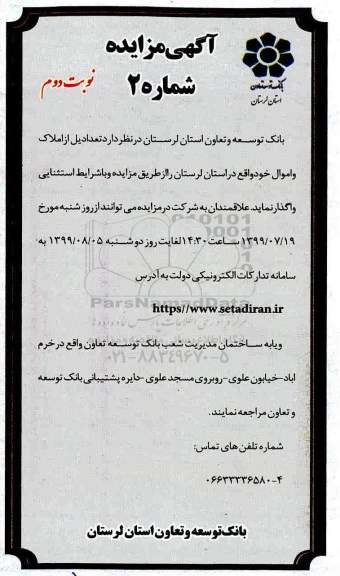 آگهی مزایده
شماره ۲
نوبت دوم
بانک توسعه تعاون
استان لرستان
بانک توسعه و تعاون استان لرستان در نظر دارد تعدادیل از املاک
واموال خود واقع در استان لرستان را از طریق مزایده و با شرایط استثنایی
واگذار نماید. علاقمندان به شرکت در مزایده می توانند از روز شنبه مورخ
۱۳۹۹/۰۷/۱۹ ساعت ۱۴:۳۰ لغایت روز دو شنبه ۱۳۹۹/۰۸/۰۵ به
سامانه تدارکات الکترونیکی دولت به آدرس
https//www.setadiran.ir
ParsNamadData
و یا به ساختمان مدیریت شعب بانک توسعه تعاون واقع در خرم
۰۲۱-۸۸۳۴۹۶۷۰-۵
اباد-خیابون علوی-روبروی مسجد علوی -دایره پشتیبانی بانک توسعه
و تعاون مراجعه نمایند.
شماره تلفن های تماس:
۰۶۶۳۳۳۳۶۵۸۰-۴
بانک توسعه و تعاون استان لرستان